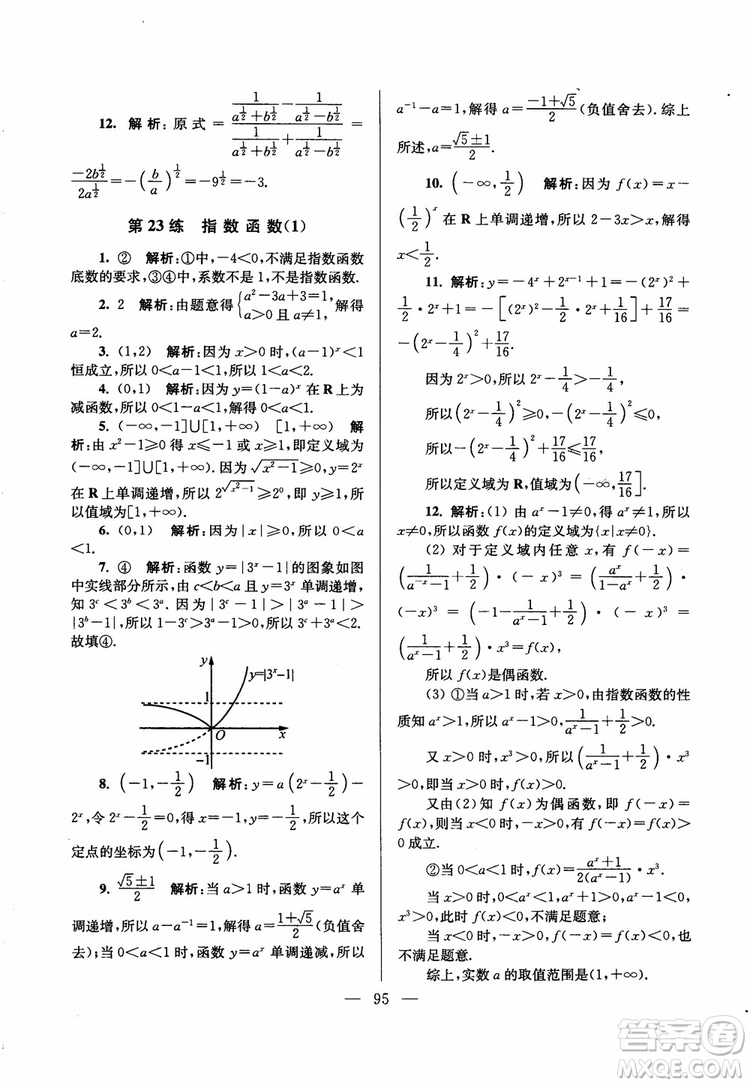 12. 解析：原式 = \frac{\frac{1}{a^{\frac{1}{2}}+b^{\frac{1}{2}}}-\frac{1}{a^{\frac{1}{2}}-b^{\frac{1}{2}}}}{\frac{1}{a^{\frac{1}{2}}+b^{\frac{1}{2}}}+\frac{1}{a^{\frac{1}{2}}-b^{\frac{1}{2}}}} =
\frac{-2b^{\frac{1}{2}}}{2a^{\frac{1}{2}}}=-\left(\frac{b}{a}\right)^{\frac{1}{2}}=-9^{\frac{1}{2}}=-3.
第23练 指数函数(1)
1. ② 解析：①中，-4<0，不满足指数函数
底数的要求，③④中，系数不是1，不是指数函数.
2. 2 解析：由题意得{a²-3a+3=1, a>0且a≠1, 解得
a=2.
3. (1,2) 解析：因为x>0时，(a-1)ˣ<1
恒成立，所以0<a-1<1，所以1<a<2.
4. (0,1) 解析：因为y=(1-a)ˣ在R上为
减函数，所以0<1-a<1，所以0<a<1.
5. (-∞,-1]∪[1,+∞) [1,+∞) 解
析：由x²-1≥0得x≤-1或x≥1，即定义域为
(-∞,-1]∪[1,+∞). 因为√(x²-1)≥0，y=2ˣ
在R上单调递增，所以2^{√(x²-1)}≥2⁰=1，所
以值域为[1,+∞).
6. (0,1) 解析：因为|x|≥0，所以0<a
<1.
7. ④ 解析：函数y=|3ˣ-1|的图象如图
中实线部分所示，由c<b<a且y=3ˣ单调递增，
知3ᶜ<3ᵇ<3ᵃ. 因为|3ᶜ-1|>|3ᵃ-1|>
|3ᵇ-1|，所以1-3ᶜ>3ᵃ-1，所以3ᶜ+3ᵃ<2.
故填④.
y
y=|3ˣ-1|
1
O
x
-1
8. (-1,-\frac{1}{2}) 解析：y=a(2ˣ-\frac{1}{2})-
2ˣ，令2ˣ-\frac{1}{2}=0，得x=-1，所以这个
定点的坐标为(-1,-\frac{1}{2}).
9. \frac{√5±1}{2} 解析：当a>1时，函数y=aˣ单
调递增，所以a-a⁻¹=1，所以a=\frac{1+√5}{2}(负值舍
去)；当0<a<1时，函数y=aˣ单调递减，所以
a⁻¹-a=1，解得a=\frac{-1+√5}{2}(负值舍去). 综上
所述，a=\frac{√5±1}{2}.
10. (-∞,\frac{1}{2}) 解析：因为f(x)=x-
(\frac{1}{2})ˣ在R上单调递增，所以2-3x>x，所以
x<\frac{1}{2}.
11. 解析：y=-4ˣ+2ˣ⁻¹+1=-(2ˣ)²+
\frac{1}{2}·2ˣ+1=-[(2ˣ-\frac{1}{4})²-\frac{1}{16}]+1=
-(2ˣ-\frac{1}{4})²+\frac{17}{16}.
因为2ˣ>0，所以2ˣ-\frac{1}{4}>-\frac{1}{4}，
所以(2ˣ-\frac{1}{4})²≥0，
所以-(2ˣ-\frac{1}{4})²+\frac{17}{16}≤\frac{17}{16}，
所以定义域为R，值域为(-∞,\frac{17}{16}].
12. 解析：(1) 由aˣ-1≠0，得aˣ≠1，所以
x≠0，所以函数f(x)的定义域为{x|x≠0}.
(2) 对于定义域内任意x，有f(-x)=
(\frac{1}{a⁻ˣ-1}+\frac{1}{2})·(-x)³=(\frac{aˣ}{1-aˣ}+\frac{1}{2})·
(-x)³=(-1-\frac{1}{aˣ-1}+\frac{1}{2})·(-x)³=
(\frac{1}{aˣ-1}+\frac{1}{2})·x³=f(x)，
所以f(x)是偶函数.
(3) ①当a>1时，若x>0，由指数函数的性
质知aˣ>1，所以aˣ-1>0，\frac{1}{aˣ-1}+\frac{1}{2}>0.
又x>0时，x³>0，所以(\frac{1}{aˣ-1}+\frac{1}{2})·x³
>0，即当x>0时，f(x)>0.
又由(2)知f(x)为偶函数，即f(-x)=
f(x)，则当x<0时，-x>0，有f(-x)=f(x)>
0成立.
②当0<a<1时，f(x)=\frac{aˣ+1}{2(aˣ-1)}·x³.
当x>0时，0<aˣ<1，aˣ+1>0，aˣ-1<0，
x³>0，此时f(x)<0，不满足题意；
当x<0时，-x>0，f(-x)=f(x)<0，也
不满足题意.
综上，实数a的取值范围是(1,+∞).
— 95 —
答案圈
MXQE.COM